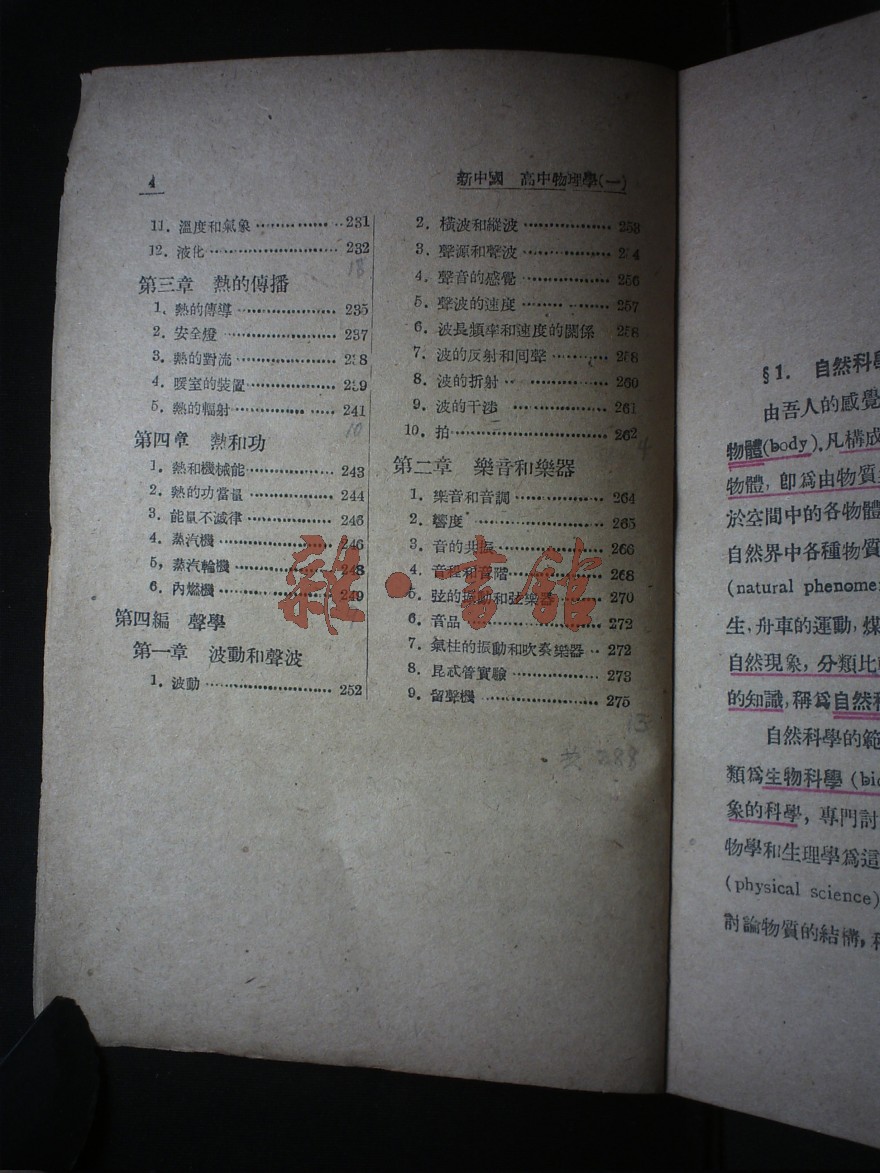 4
新中國 高中物理學(一)
11. 溫度和氣象 231
12. 液化 232
18
第三章 熱的傳播
1. 熱的傳導 235
2. 安全燈 237
3. 熱的對流 238
4. 暖室的裝置 239
5. 熱的輻射 241
10
第四章 熱和功
1. 熱和機械能 243
2. 熱的功當量 244
3. 能量不滅律 246
4. 蒸汽機 246
5. 蒸汽輪機 248
6. 內燃機 249
第四編 聲學
第一章 波動和聲波
1. 波動 252
2. 橫波和縱波 253
3. 聲源和聲波 254
4. 聲音的感覺 256
5. 聲波的速度 257
6. 波長頻率和速度的關係 258
7. 波的反射和回聲 258
8. 波的折射 260
9. 波的干涉 261
10. 拍 262
4
第二章 樂音和樂器
1. 樂音和音調 264
2. 響度 265
3. 音的共振 266
4. 音程和音階 268
5. 弦的振動和弦樂器 270
6. 音品 272
7. 氣柱的振動和吹奏樂器 272
8. 昆忒管實驗 273
9. 留聲機 275
13
共 288
雜·書館
§1. 自然科學
由吾人的感覺
物體(body). 凡構成
物體, 即爲由物質
於空間中的各物體
自然界中各種物質
(natural phenome
生, 舟車的運動, 煤
自然現象, 分類比
的知識, 稱爲自然科
自然科學的範
類爲生物科學 (bio
象的科學, 專門討
物學和生理學爲這
(physical science)
討論物質的結構,